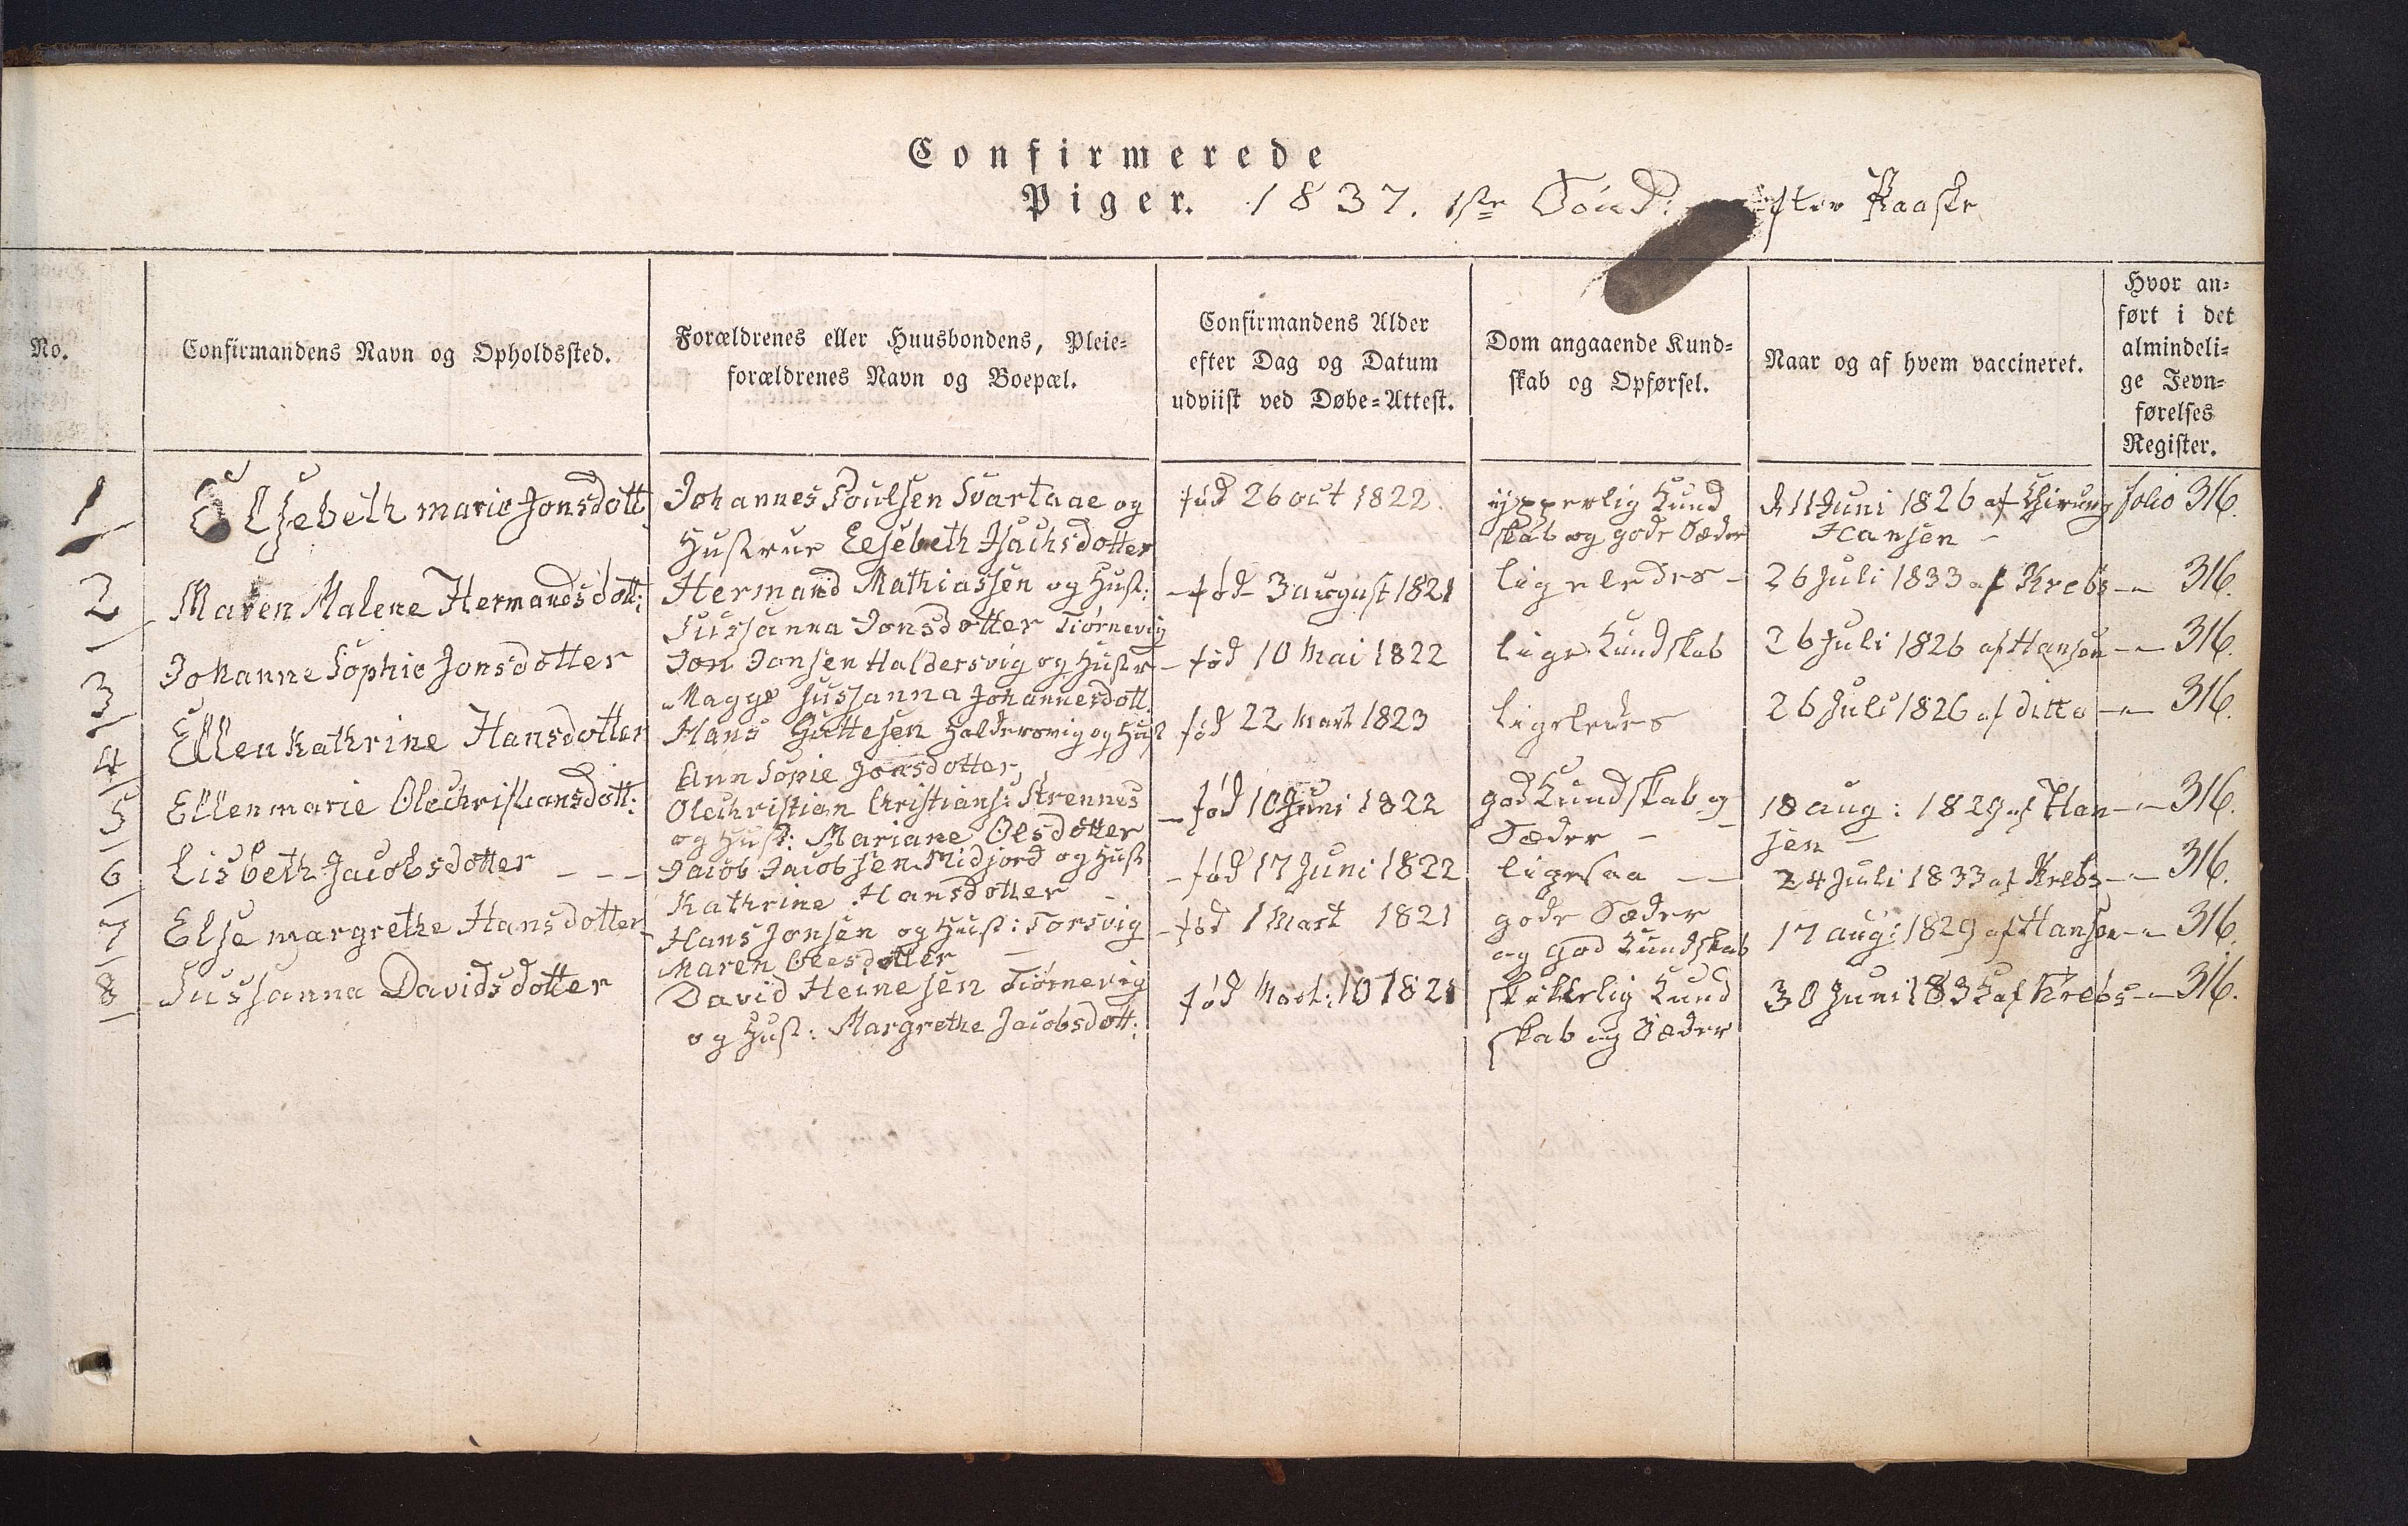 Confirmerede
Piger. 1837. 1ste Sønd: efter Paaske
No.
Confirmandens Navn og Opholdssted.
Forældrenes eller Huusbondens, Pleie=
forældrenes Navn og Boepæl.
Confirmandens Alder
efter Dag og Datum
udviist ved Døbe=Attest.
Dom angaaende Kund=
skab og Opførsel.
Naar og af hvem vaccineret.
Hvor an=
ført i det
almindeli=
ge Jevn=
førelses
Register.
1 Elsebeth marie Jonsdott: Johannes Poulsen Svartaae og født 26 oct 1822. ypperlig Kund d 11 Juni 1826 af Chirurg folio 316.
Hustrue Elsebeth Isachsdotter skab og gode Sæder Hansen -
2 Maren Malene Hermandsdott: Hermand Mathiassen og Hust: - fød 3 august 1821 ligeledes - 26 Juli 1833 af Krebs -"- 316.
Sussanna Jonsdotter Tiørnevig
3 Johanne Sophie Jonsdotter Jon Jonsen Haldersvig og Hustr - fød 10 Mai 1822 lige Kundskab 26 Juli 1826 af Hansen -"- 316.
Magge Sussanna Johannesdott.
4 Ellen Kathrine Hansdotter Hans Guttesen Haldersvig og Hust fød 22 Mart 1823 ligeledes 26 Juli 1826 af ditto -"- 316.
Ann Sopie Jonsdotter,
5 Ellen marie Olechristiansdott: Olechristian Christians: Strennes - fød 10 Juni 1822 god Kundskab og 18 aug: 1829 af Han -"- 316.
og Hust: Mariane Olsdotter Sæder - - sen -
6 Lisbeth Jacobsdotter - - - Jacob Jacobsen Midjord og Hust - fød 17 Juni 1822 ligesaa - - 24 Juli 1833 af Krebs -"- 316.
Kathrine Hansdotter -
7 Else margrethe Hansdotter Hans Jonsen og Hust: Torsvig - fød 1 Mart 1821 gode Sæder 17 aug: 1829 af Hansen -"- 316.
Maren Olesdotter - og god Kundskab
8 Sussanna Davidsdotter David Heinesen Tiørnevig fød Mart: 10 1821 skikkelig Kund 30 Juni 1833 af Krebs -"- 316.
og Hust: Margrethe Jacobsdott: skab og Sæder